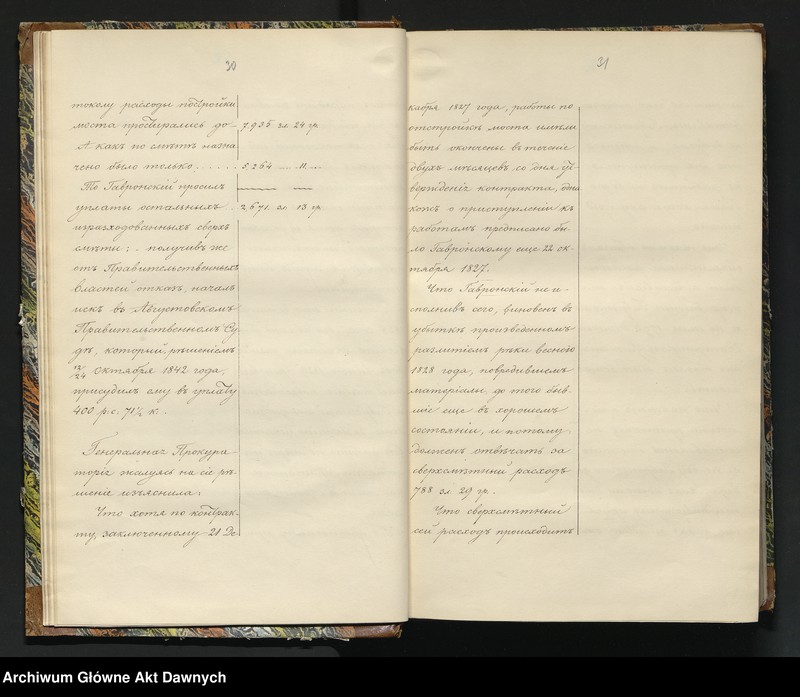 30
токолу расходы постройки
моста простирались до – 7,935 зл. 24 гр.
А какъ по смѣтѣ назна
чено было только . . . . . 5,264 — 11 —
То Гавронскій просилъ
уплаты остальныхъ . . 2,671 зл. 13 гр.
израсходованныхъ сверхъ
смѣты; – получивъ же
отъ Правительственныхъ
властей отказъ, началъ
искъ въ Августовскомъ
Правительственномъ Су-
дѣ, который, рѣшеніемъ
12/24 Октября 1842 года,
присудилъ ему въ уплату
400 р. с. 71½ к. –
Генеральная Прокура
торія жалуясь на сіе рѣ-
шеніе изъяснила:
Что хотя по контрак-
ту, заключенному 21 Де
31
кабря 1827 года, работы по
отстройкѣ моста имѣли
быть окончены въ теченіе
двухъ мѣсяцевъ со дня ут-
вержденія контракта, одна
кожъ о приступленіи къ
работамъ предписано бы-
ло Гавронскому еще 22 ок-
тября 1827.
Что Гавронскій не и-
полнивъ сего, виновенъ въ
убыткѣ произведенномъ
разлитіемъ рѣки весною
1828 года, повредившемъ
матеріалы до того быв-
шіе еще въ хорошемъ
состояніи, и потому
долженъ отвѣчать за
сверхсмѣтный расходъ
788 зл. 29 гр.
Что сверхсмѣтный
сей расходъ происходитъ
Archiwum Główne Akt Dawnych